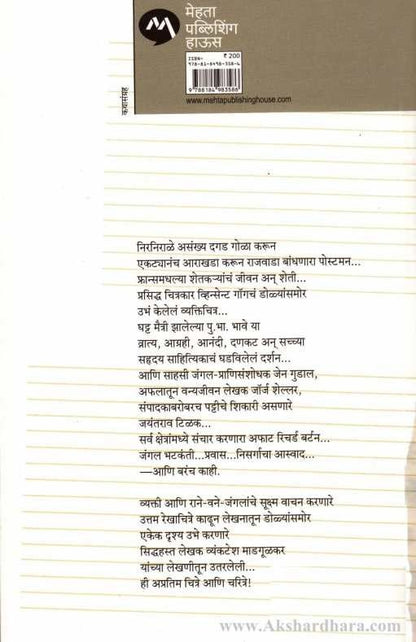 मेहता
पब्लिशिंग
हाऊस
₹ 200
ISBN-
978-81-8498-358-6
9 788184 983586
www.mehtapublishinghouse.com
कथासंग्रह
निरनिराळे असंख्य दगड गोळा करून
एकट्यानंच आराखडा करून राजवाडा बांधणारा पोस्टमन...
फ्रान्समधल्या शेतकऱ्यांचं जीवन अन् शेती...
प्रसिद्ध चित्रकार व्हिन्सेन्ट गॉगचं डोळ्यांसमोर
उभं केलेलं व्यक्तिचित्र...
घट्ट मैत्री झालेल्या पु.भा. भावे या
व्रात्य, आग्रही, आनंदी, दणकट अन् सच्च्या
सहृदय साहित्यिकाचं घडविलेलं दर्शन...
आणि साहसी जंगल-प्राणिसंशोधक जेन गुडाल,
अफलातून वन्यजीवन लेखक जॉर्ज शेल्लर,
संपादकाबरोबरच पट्टीचे शिकारी असणारे
जयंतराव टिळक...
सर्व क्षेत्रांमध्ये संचार करणारा अफाट रिचर्ड बर्टन...
जंगल भटकंती...प्रवास...निसर्गाचा आस्वाद...
—आणि बरंच काही.
व्यक्ती आणि राने-वने-जंगलांचे सूक्ष्म वाचन करणारे
उत्तम रेखाचित्रे काढून लेखनातून डोळ्यांसमोर
एकेक दृश्य उभे करणारे
सिद्धहस्त लेखक व्यंकटेश माडगूळकर
यांच्या लेखणीतून उतरलेली...
ही अप्रतिम चित्रे आणि चरित्रे!
www.Akshardhara.com